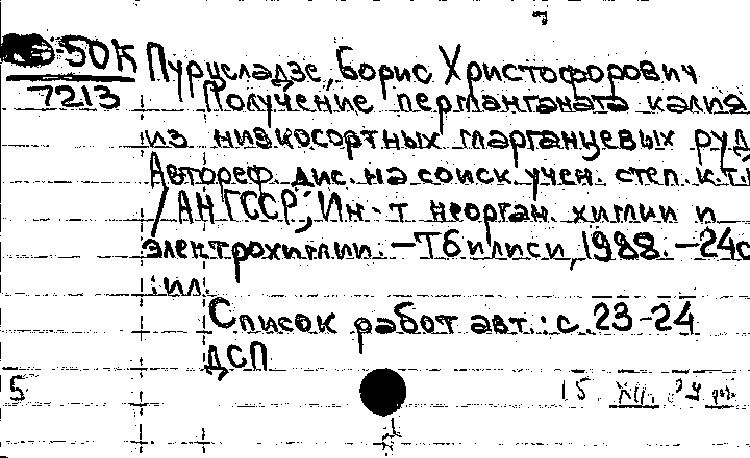 -50К
7213
Пурцеладзе, Борис Христофорович
Получение перманганата калия
из низкосортных марганцевых руд
Автореф. дис. на соиск. учен. степ. к.т.
/АН ГССР, Ин-т неорган. химии и
электрохимии. –Тбилиси, 1988. –24с
: ил.
Список работ авт.: с. 23-24
ДСП
5
15